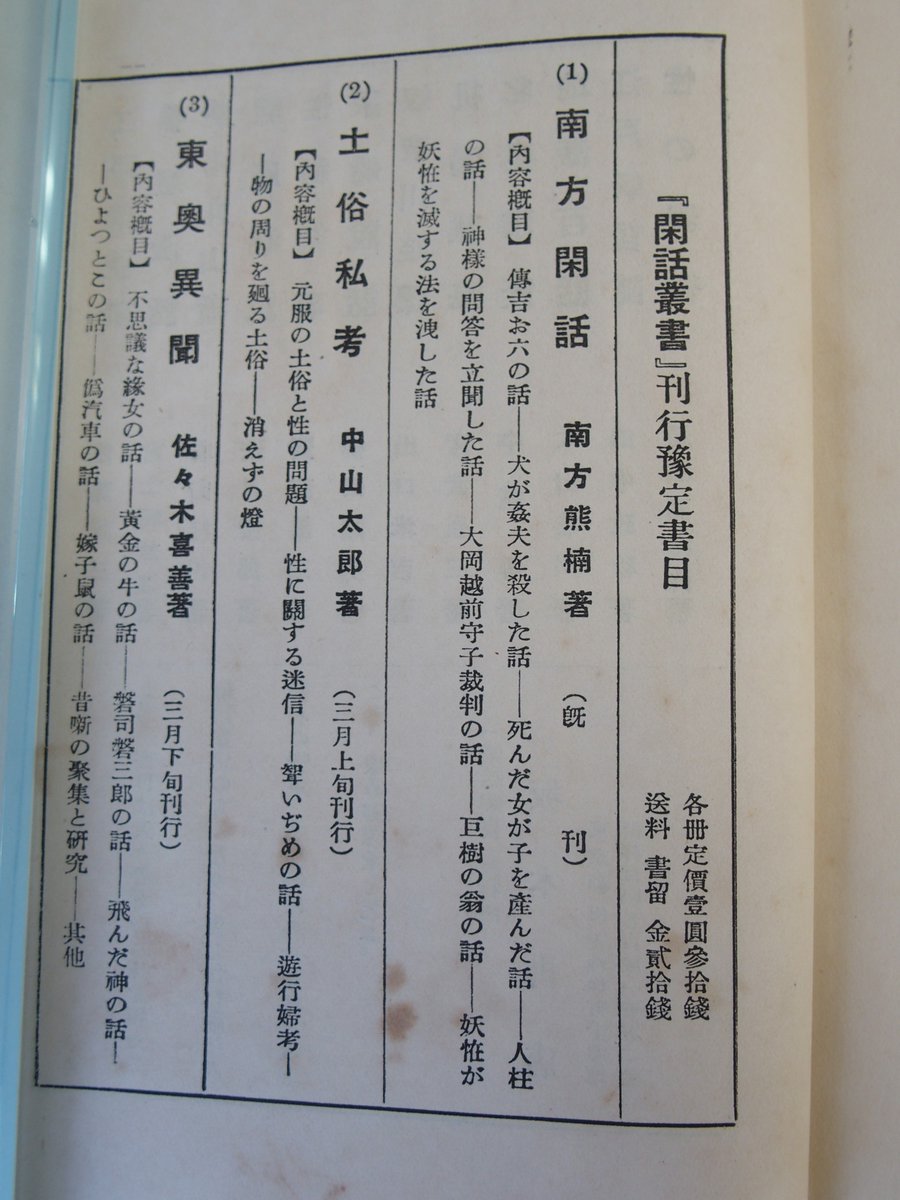 『閑話叢書』刊行豫定書目
各冊定價壹圓參拾錢
送料 書留 金貳拾錢
(1) 南方閑話 南方熊楠著 (既刊)
【內容概目】 傳吉お六の話――犬が姦夫を殺した話――死んだ女が子を產んだ話――人柱
の話――神樣の問答を立聞した話――大岡越前守子裁判の話――巨樹の翁の話――妖恠が
妖恠を滅する法を洩した話
(2) 土俗私考 中山太郎著 (三月上旬刊行)
【內容概目】 元服の土俗と性の問題――性に關する迷信――聟いぢめの話――遊行婦考―
―物の周りを廻る土俗――消えずの燈
(3) 東奧異聞 佐々木喜善著 (三月下旬刊行)
【內容概目】 不思議な緣女の話――黃金の牛の話――磐司磐三郎の話――飛んだ神の話―
―ひよつとこの話――僞汽車の話――嫁子鼠の話――昔噺の聚集と硏究――其他